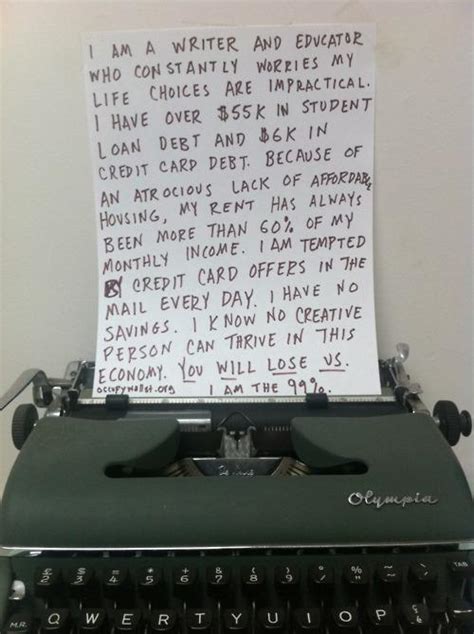 I AM A WRITER AND EDUCATOR
WHO CONSTANTLY WORRIES MY
LIFE CHOICES ARE IMPRACTICAL.
I HAVE OVER $55K IN STUDENT
LOAN DEBT AND $6K IN
CREDIT CARD DEBT. BECAUSE OF
AN ATROCIOUS LACK OF AFFORDABLE
HOUSING, MY RENT HAS ALWAYS
BEEN MORE THAN 60% OF MY
MONTHLY INCOME. I AM TEMPTED
BY CREDIT CARD OFFERS IN THE
MAIL EVERY DAY. I HAVE NO
SAVINGS. I KNOW NO CREATIVE
PERSON CAN THRIVE IN THIS
ECONOMY. YOU WILL LOSE US.
occupywallst.org I AM THE 99%.
Olympia
2 3 4 5 6 7 8 9
TAB
M.R. Q W E R T Y U I O P